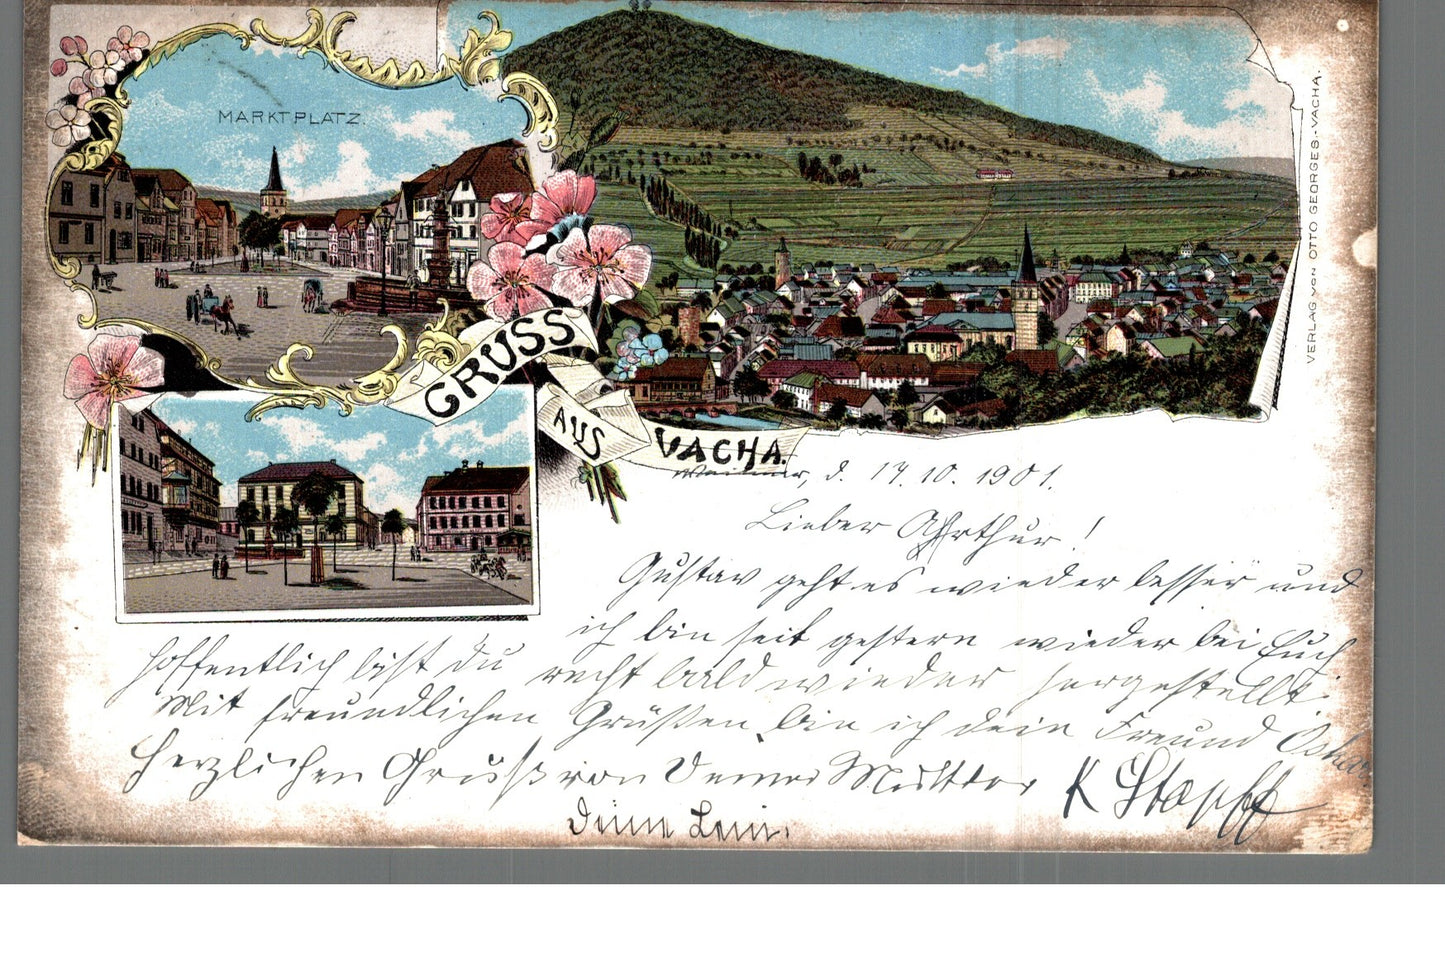 MARKTPLATZ.
GRUSS
AUS
VACHA.
VERLAG VON OTTO GEORGES-VACHA.
d. 17. 10. 1901.
Lieber Arthur!
Gustav geht es wieder besser und
ich bin seit gestern wieder bei Euch
hoffentlich bist du recht bald wieder hergestellt.
Mit freundlichen Grüßen bin ich dein Freund Oskar
Herzlichen Gruß von Deiner Mutter K Stapff
Deine